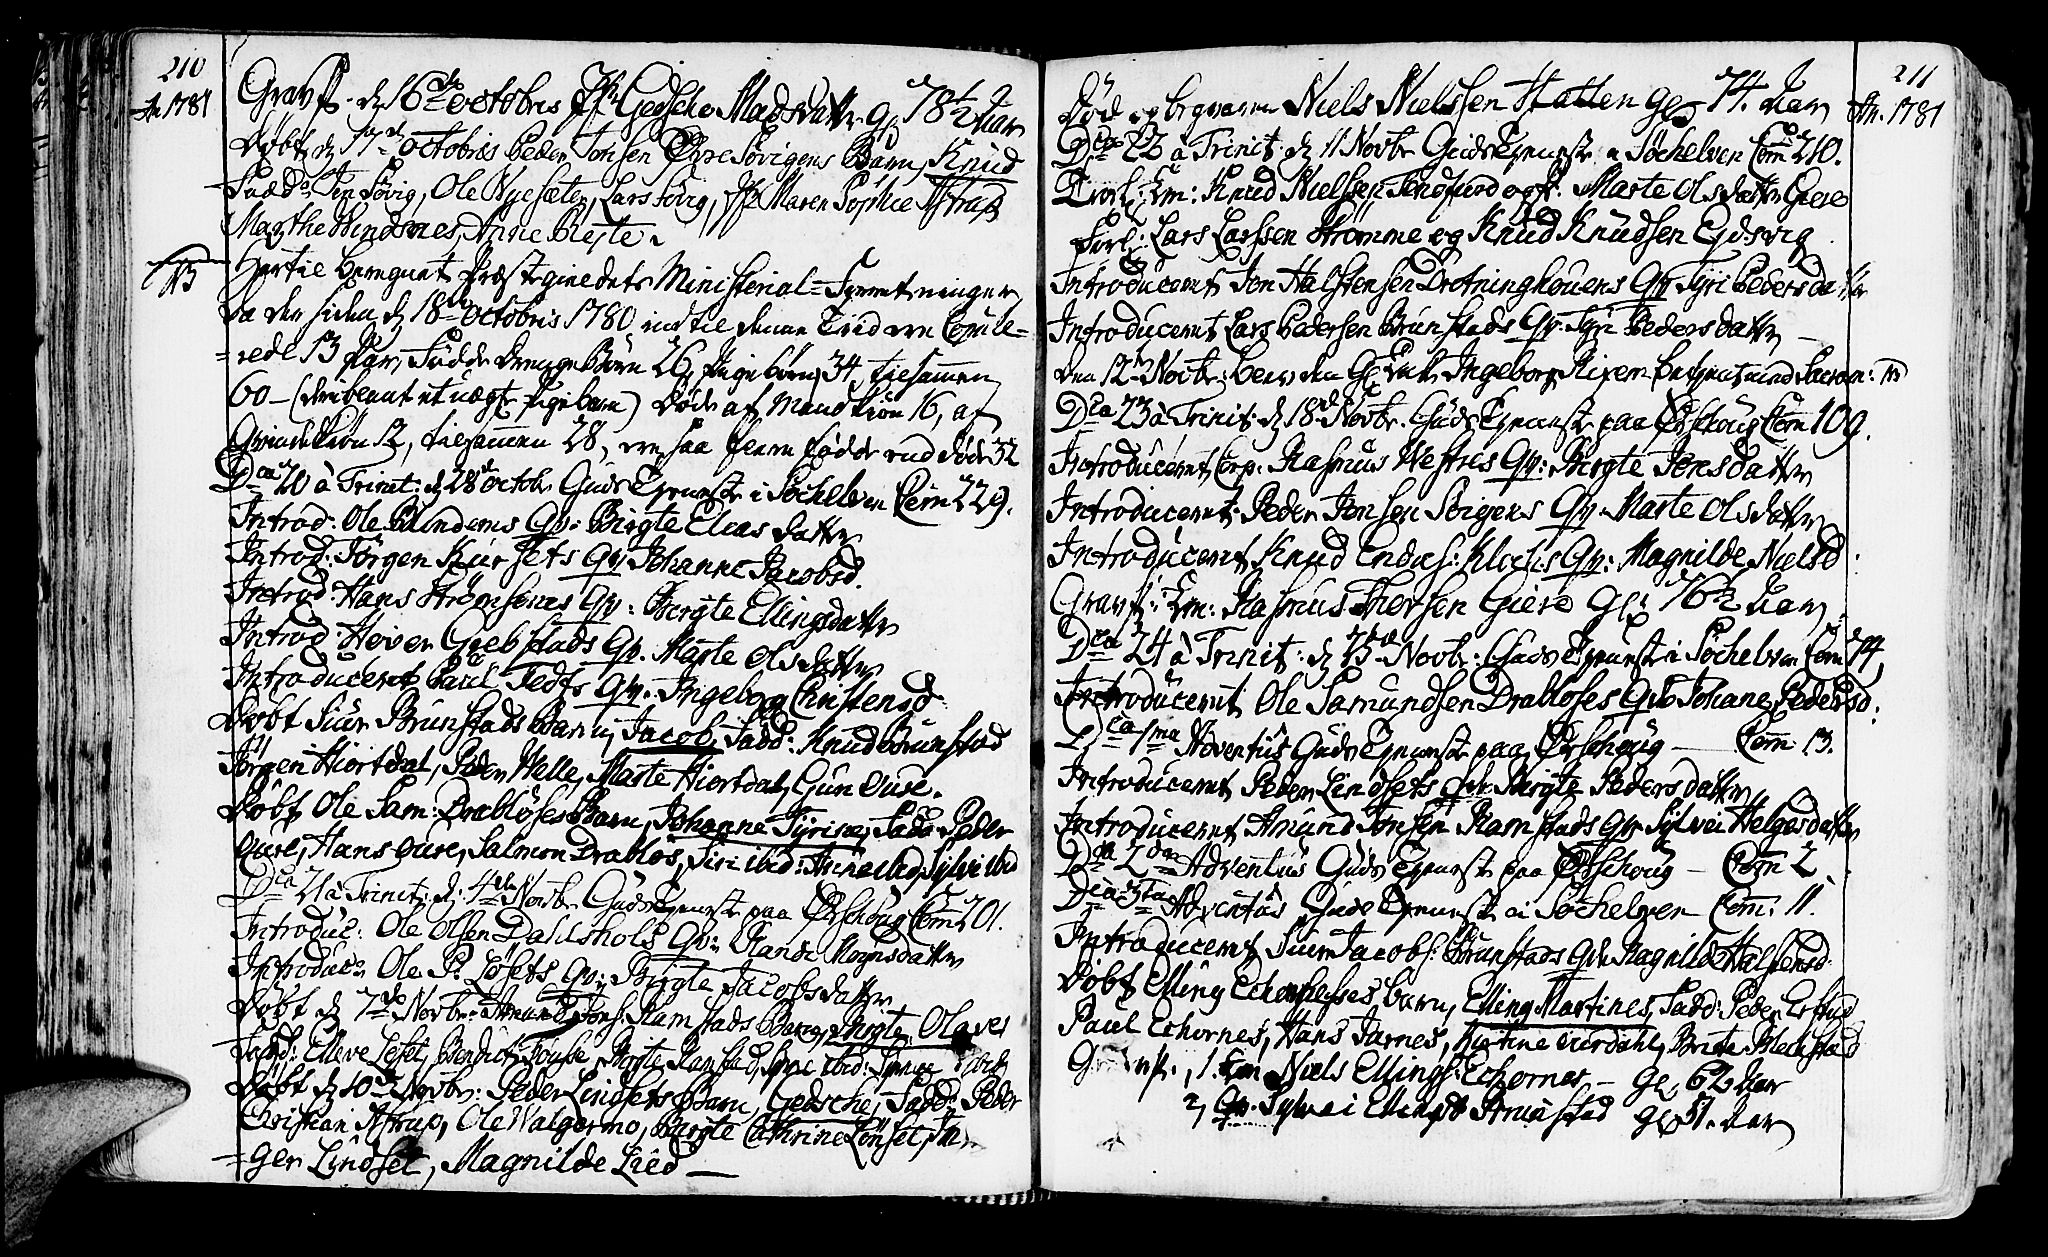 210
An. 1781
Gravf. d. 16de octobris Jfr. Gedsche Madsdatter g. 78½ Aar
Døbt d. 17de octobris Peder Jonsen Søvigens Barn, Knud
Fadd: Jen Søvig, Ole Nysæter, Lars Søvig, Jfr Maren Sophie Astrup
Marthe Bindsnes, Anne Reite.
NB
Hertil beregnet Præstegieldets Ministerial-Forretninger,
da der siden d. 18de octobris 1780 indtil denne Tiid ere Copule-
=rede 13 Par, Fødde Drenge Børn 26, Pige børn 34, tilsammen
60 - (deriblant et uægte Pige barn) Døde af Mandkiøn 16, af
Qvindekiøn 12, tilsammen 28, ere saa fleere fødde end døde 32
Dca 20 à Trinit: d. 28de octobr Guds Tieneste i Søchelven Com 229.
Introd: Ole Blindems Qv: Birgte Elias datter
Introd: Jørgen Kursets Qv. Johanne Jacobsd.
Introd: Hans Strømsenes Qv: Birgte Ellingsdatter
Introd: Heiver Grebstads Qv. Marte Olsdatter
Introduceret Paul Tedts Qv. Ingeborg Christensd
Døbt Siur Brunstads Barn, Jacob, Fadd: Knud Brunstad
Jørgen Hiortdal, Peder Welle, Marte Hiortdal, Guri Oure.
Døbt Ole Sam: Drabløses Barn, Johanne Tyrine, Fadd: Peder
Oure, Hans Oure, Salmon Drabløs, Siri ibid: Anne ibid, Sylvi ibid
Dca 21 à Trinit: d: 4de Novbr Guds Tieneste paa Ørschoug Com 201.
Introduc: Ole Olsen Dahlshols Qv: Rande Mognsdatter
Introduc: Ole P. Løsets Qv: Birgte Jacobsdatter
Døbt d 7de Novbr: Amund Jons: Ramstads Barn, Birgte Olave
Fadd: Elleve Løset, Bendict Housse, Birgte Ramstad,
Døbt d 10de Novbr: Peder Lindsets Barn, Gedsche, Fadd: Peder
Christian Astrup, Ole Walgermo, Birgte Cathrine Lønset, In
=ger Lindset, Magnilde Lied -
211
An. 1781
Død og begraven Niels Nielssen Hatlen g. 74. Aar
Dca 22 à Trinit: d 11 Novbr Guds Tieneste i Søchelven Com 210.
Trol: Em: Knud Nielssen Tendfiord og P. Marte Olsdatter Giere
Forl: Lars Larssen Strømme og Knud Knudsen Eidsvig
Introduceret Jon Halstensen Drotninghougens Qv Tyri Pedersdatter
Introduceret Lars Pedersen Brunstads Qv. Tyri Pedersdatter -
Den 12te Novbr: blev den Ingeborg betient med Sacram:
Dca 23 à Trinit: d 18de Novbr. Guds Tieneste paa Ørskoug Com 109.
Introduceret Corp: Rasmus Westris Qv: Birgte Jonsdatter
Introduceret Peder Jonsen Søvigens Qv. Marte Olsdatter
Introduceret Knud Endres: Klochs Qv: Magnilde Nielsd
Gravf: Em: Rasmus Thorsen Giere Gl: 76½ Aar
Dca 24 à Trinit: d 25de Novbr: Guds Tieneste i Søchelven Com 74,
Introduceret Ole Samundsen Drabløses Qv Johane Pedersd:
Dca 1ma Adventûs Guds Tieneste paa Ørschoug - Com 13.
Introduceret Peder Lindsets Qv. Birgte Pedersdatter
Introduceret Amund Jonsen Ramstads Qv Sylvei Helgesdatter
Dca 2da Adventûs Guds Tieneste paa Ørschoug - Com 2
Dca 3tia Adventûs Guds Tieneste i Søchelven - Com: 11.
Introduceret Siur Jacobs: Brunstads Qv. Ragnilde Halstensd:
Døbt Elling Echornesses barn, Elling Martines, Fadd: Peder
Paul Echornes, Hans Jarnes, Kirstine Uurdahl, Brite Blechstad
1. Em Niels Ellings: Echornes - gl. 62 Aar
2, Qv. Sylvei Ellingsd Strømstad gl 51. Aar